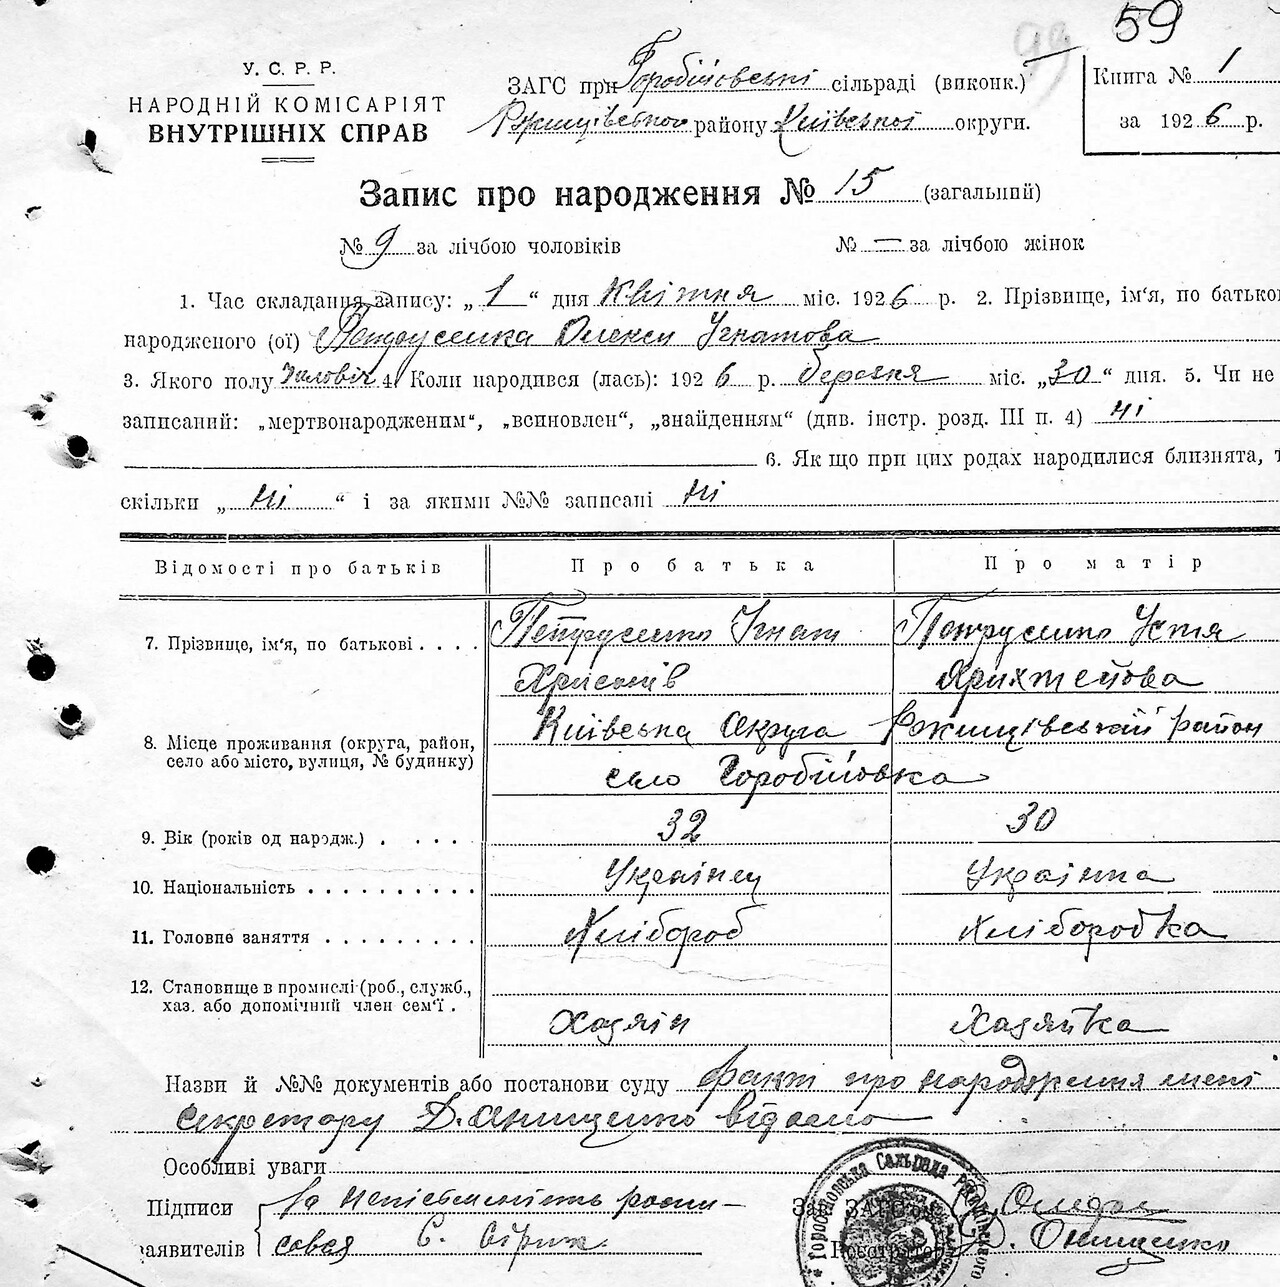 59
99
У. С. Р. Р.
НАРОДНІЙ КОМІСАРІЯТ
ВНУТРІШНІХ СПРАВ
ЗАГС при Горобіївські сільраді (виконк.)
Ржищівського району Київської округи.
Книга № 1
за 1926 р.
Запис про народження № 15 (загальний)
№ 9 за лічбою чоловіків № — за лічбою жінок
1. Час складання запису: „1“ дня Квітня міс. 1926 р. 2. Прізвище, ім'я, по батькові
народженого (ої) Петрусенка Олекси Ігнатова
3. Якого полу Чоловіч 4. Коли народився (лась): 1926 р. березня міс. „30“ дня. 5. Чи не
записаний: „мертвонародженим“, „всиновлен“, „знайденням“ (див. інстр. розд. III п. 4) ні
6. Як що при цих родах народилися близнята, т
скільки „ні“ і за якими №№ записані ні
Відомості про батьків Про батька Про матір
7. Прізвище, ім'я, по батькові . . . . Петрусенко Ігнат Петрусенко Устя
Київська Округа Ржищівський район
8. Місце проживання (округа, район,
село або місто, вулиця, № будинку)
село Горобіївка
9. Вік (років од народж.) . . . . 32 30
10. Національність . . . . . . . . . Українец Українка
11. Головне заняття . . . . . . . . Хлібороб Хліборобка
12. Становище в промислі (роб., служб.,
хаз. або допомічний член сем'ї .
Хазяін Хазяйка
Назви й №№ документів або постанови суду факт про народження мені
секретору Д. Онищенко відомо
Особливі уваги
Підписи За неписьменність роспи-
заявителів совся С.
Зав. ЗАГС'ом
Реєстратор Д. Онищенко
Горобіївська Сельрада